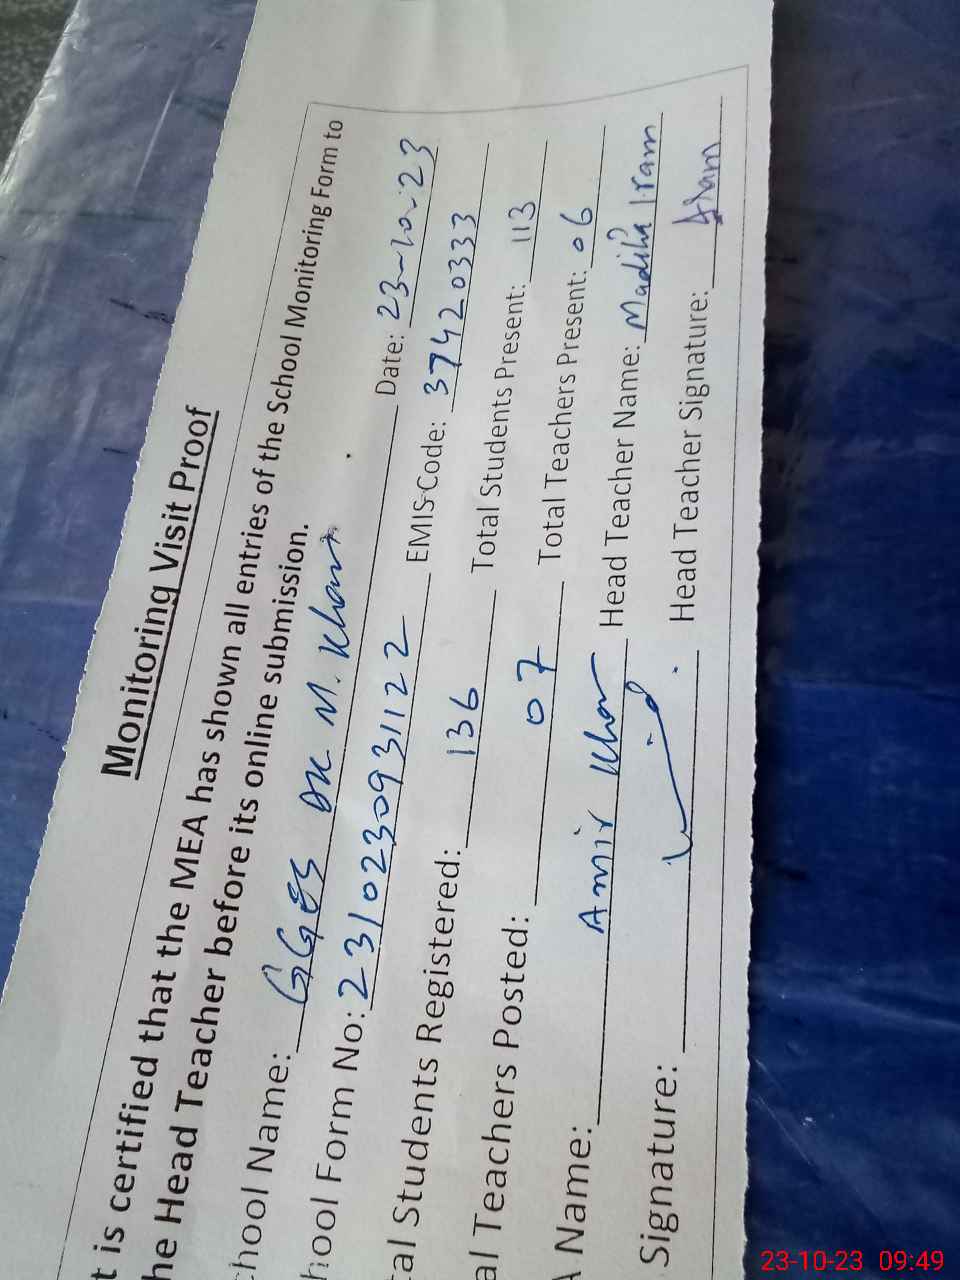 Monitoring Visit Proof
t is certified that the MEA has shown all entries of the School Monitoring Form to
he Head Teacher before its online submission.
chool Name: GGES DK M. Khan Date: 23-10-23
hool Form No: 2310230931122 EMIS Code: 37420333
tal Students Registered: 136 Total Students Present: 113
al Teachers Posted: 07 Total Teachers Present: 06
A Name: Amir Khan Head Teacher Name: Madiha Iram
Signature: Head Teacher Signature:
23-10-23 09:49